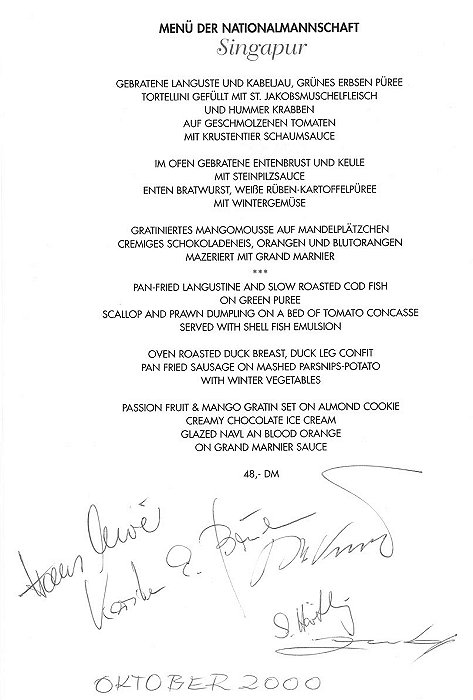 MENÜ DER NATIONALMANNSCHAFT
Singapur
GEBRATENE LANGUSTE UND KABELJAU, GRÜNES ERBSEN PÜREE
TORTELLINI GEFÜLLT MIT ST. JAKOBSMUSCHELFLEISCH
UND HUMMER KRABBEN
AUF GESCHMOLZENEN TOMATEN
MIT KRUSTENTIER SCHAUMSAUCE
IM OFEN GEBRATENE ENTENBRUST UND KEULE
MIT STEINPILZSAUCE
ENTEN BRATWURST, WEIßE RÜBEN-KARTOFFELPÜREE
MIT WINTERGEMÜSE
GRATINIERTES MANGOMOUSSE AUF MANDELPLÄTZCHEN
CREMIGES SCHOKOLADENEIS, ORANGEN UND BLUTORANGEN
MAZERIERT MIT GRAND MARNIER
***
PAN-FRIED LANGUSTINE AND SLOW ROASTED COD FISH
ON GREEN PUREE
SCALLOP AND PRAWN DUMPLING ON A BED OF TOMATO CONCASSE
SERVED WITH SHELL FISH EMULSION
OVEN ROASTED DUCK BREAST, DUCK LEG CONFIT
PAN FRIED SAUSAGE ON MASHED PARSNIPS-POTATO
WITH WINTER VEGETABLES
PASSION FRUIT & MANGO GRATIN SET ON ALMOND COOKIE
CREAMY CHOCOLATE ICE CREAM
GLAZED NAVL AN BLOOD ORANGE
ON GRAND MARNIER SAUCE
48,- DM
OKTOBER 2000